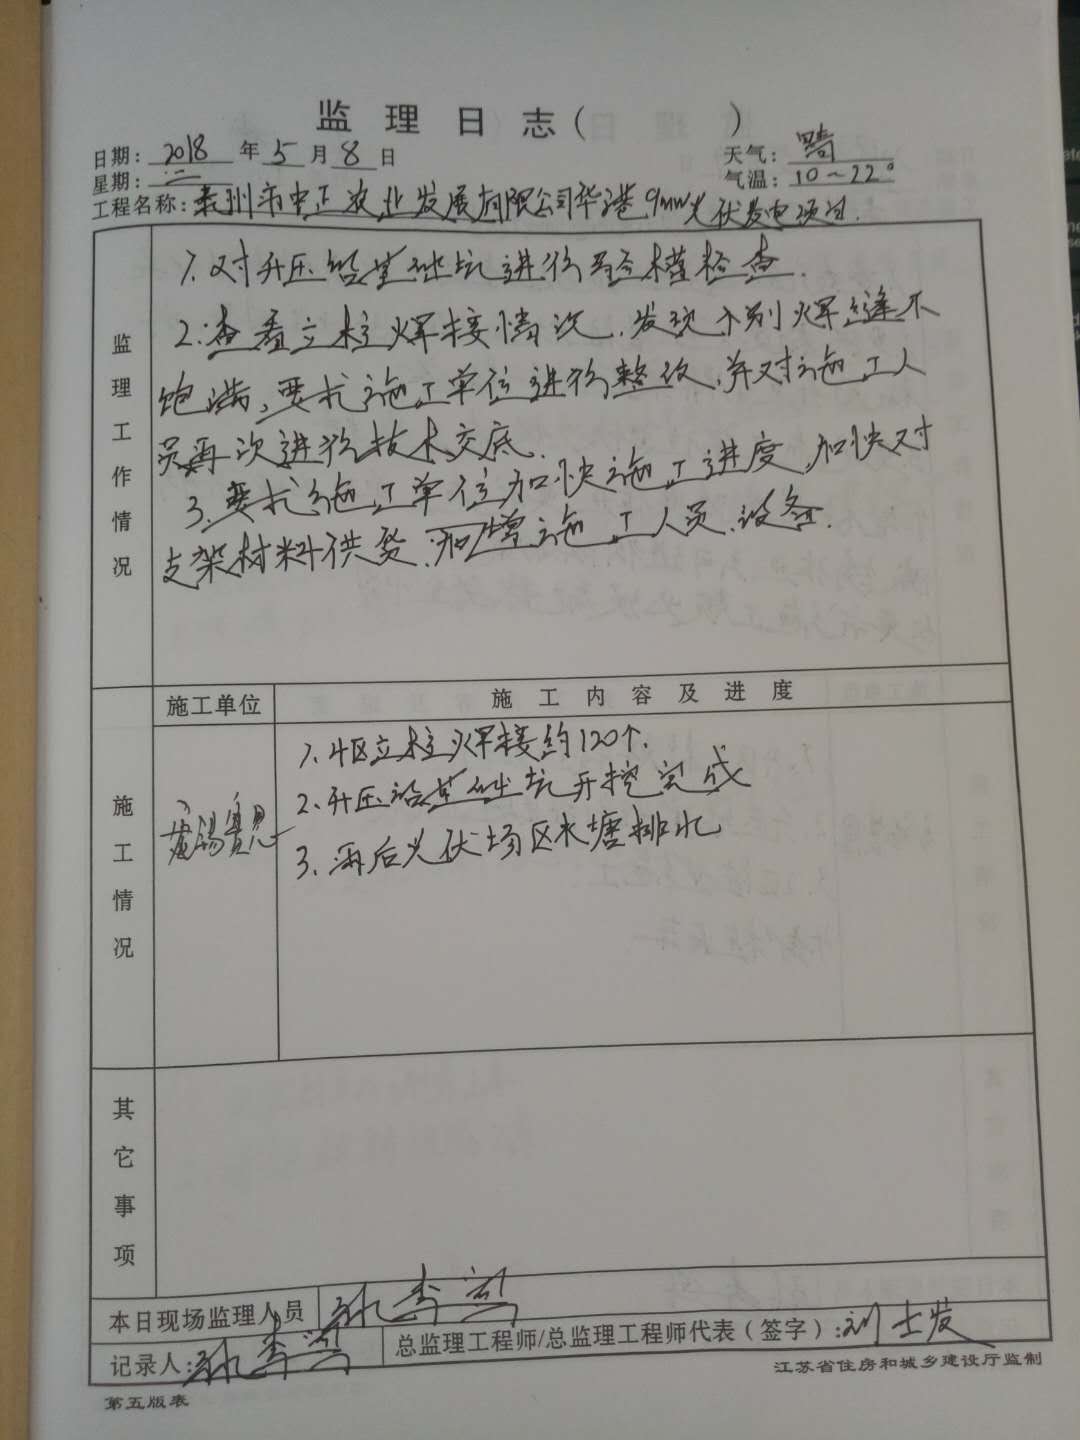 监 理 日 志 ( )
日期: 2018 年 5 月 8 日 天气: 晴
星期: 二 气温: 10~22°
工程名称: 泰州市中正农业发展有限公司华港9mw光伏发电项目.
监理工作情况
1. 对升压站基础坑进行验槽检查.
2. 查看立柱焊接情况, 发现个别焊缝不
饱满, 要求施工单位进行整改, 并对施工人
员再次进行技术交底.
3. 要求施工单位加快施工进度, 加快对
支架材料供货, 加增施工人员、设备.
施工单位 施 工 内 容 及 进 度
施工情况
1. 4区立柱焊接约120个.
2. 升压站基础坑开挖完成
3. 雨后光伏场区水塘排水
其它事项
本日现场监理人员
记录人: 总监理工程师/总监理工程师代表(签字): 刘士发
第五版表 江苏省住房和城乡建设厅监制